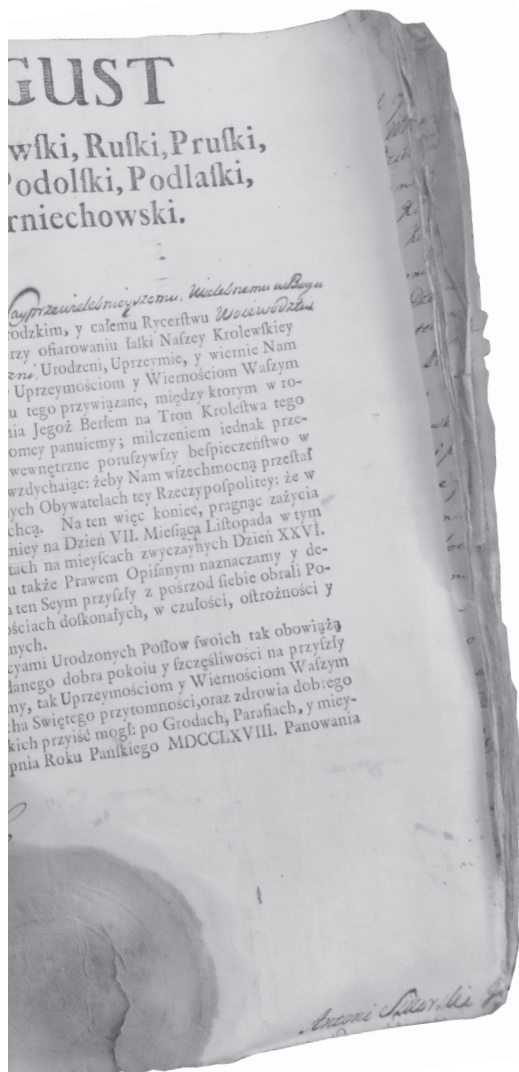 GUST
wſki, Ruſki, Pruſki,
Podolſki, Podlaſki,
rniechowski.
ayprzewielebnieyszemu, Wielebnemu w Bogu
rodzkim, y całemu Rycerſtwu Woiewodztwa
rzy ofiarowaniu łaſki Naſzey Krolewſkiey
Urodzeni, Uprzeymie, y wiernie Nam
Uprzeymościom y Wiernościom Waſzym
u tego przywiązane, między ktorym w ro-
nia Jegoż Berłem na Tron Kroleſtwa tego
omey panuiemy; milczeniem iednak prze-
wewnętrzne poruſzywſzy beſpieczeńſtwo w
wzdychaiąc: żeby Nam wſzechmocną przeſtał
ych Obywatelach tey Rzeczypoſpolitey: że w
chcą. Na ten więc koniec, pragnąc zażycia
niey na Dzień VII. Mieſiąca Liſtopada w tym
tach na mieyſcach zwyczaynych Dzień XXVI.
u także Prawem Opiſanym naznaczamy y de-
a ten Seym przyſzły z poſrzod ſiebie obrali Po-
ościach doſkonałych, w czułości, oſtrożności y
nych.
cyami Urodzonych Poſłow ſwoich tak obowiążą
danego dobra pokoiu y ſzczęśliwości na przyſzły
ny, tak Uprzeymościom y Wiernościom Waſzym
cha Swiętego przytomności, oraz zdrowia dobrego
kich przyiść mogł: po Grodach, Parafiach, y miey-
pnia Roku Pańſkiego MDCCLXVIII. Panowania
Antoni Sikorski